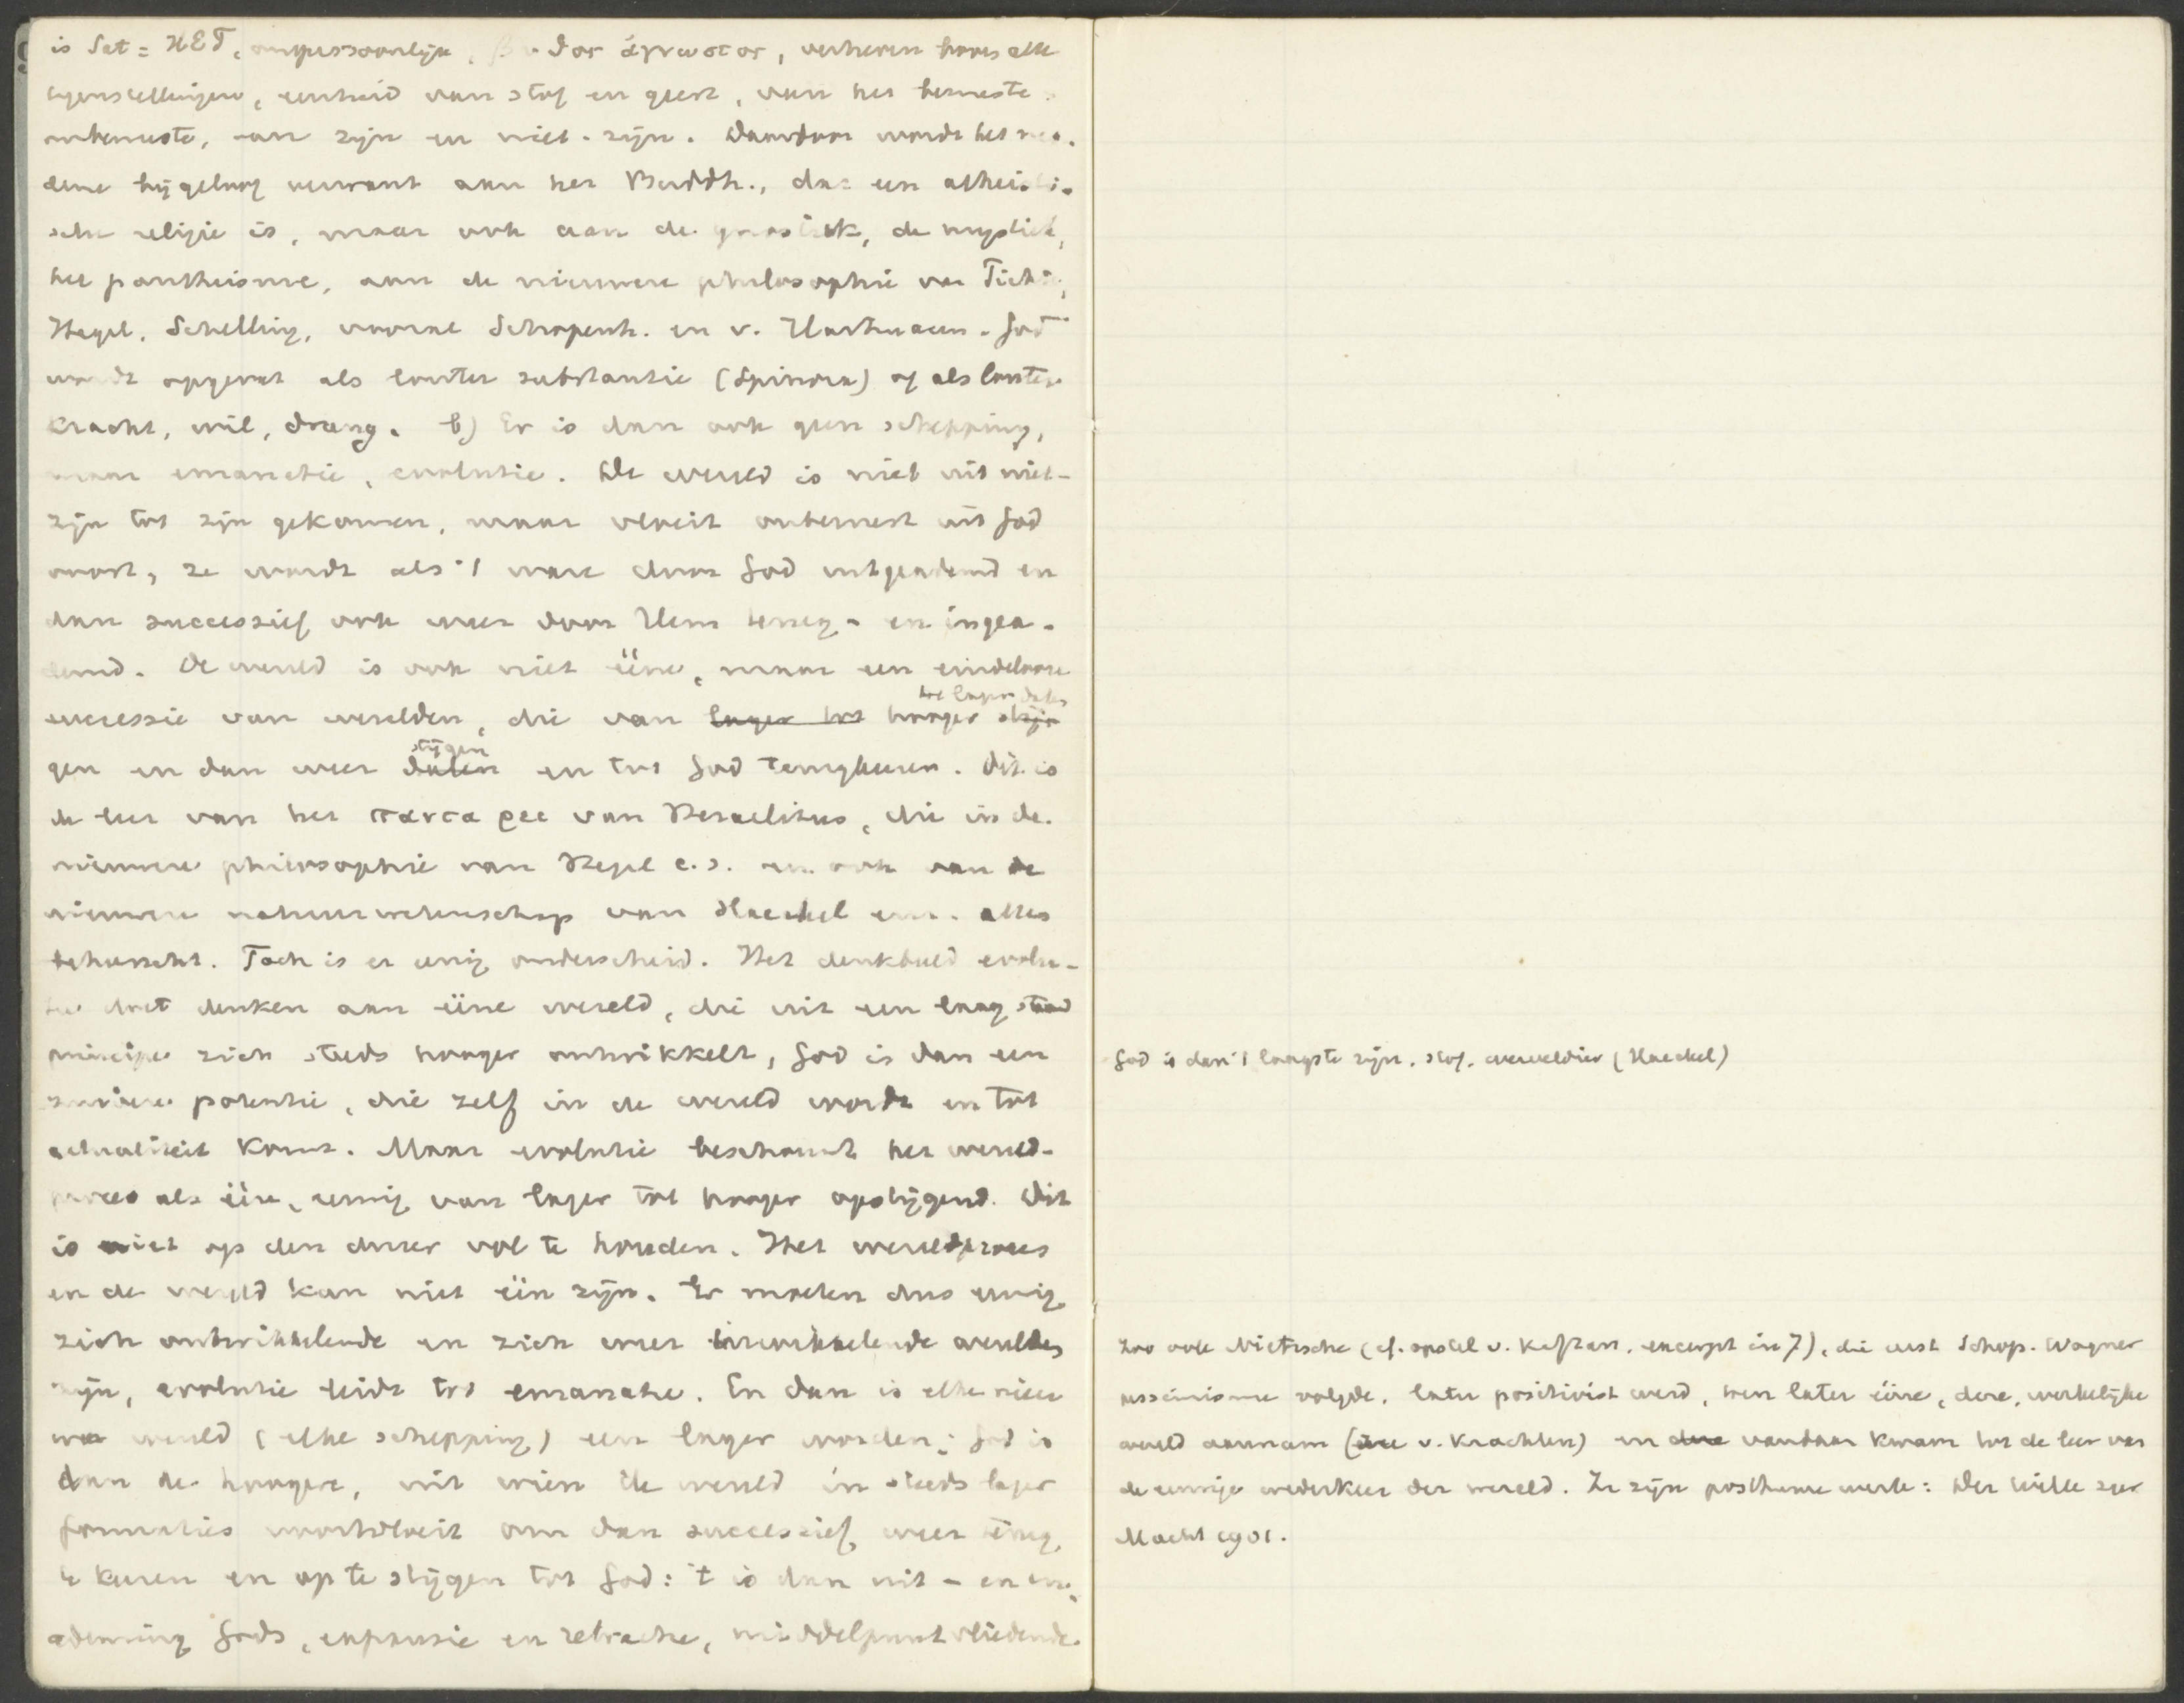 is Sat = HET, onpersoonlijk, βυθος ἄγνωστος, verheven boven alle
tegenstellingen, eenheid van stof en geest, van het bewuste
onbewuste, van zijn en niet-zijn. Daardoor wordt het mo-
derne bijgeloof verwant aan het Buddh., dat een atheisti-
sche religie is, maar ook aan de gnostiek, de mystiek,
het pantheisme, aan de nieuwere philosophie van Fichte,
Hegel, Schelling, vooral Schopenh. en v. Hartmann. God
wordt opgevat als louter substantie (Spinoza) of als louter
kracht, wil, drang. b) Er is dan ook geen schepping,
maar emanatie, evolutie. De wereld is niet uit niet-
zijn tot zijn gekomen, maar vloeit onbewust uit God
voort, ze wordt als 't ware door God uitgeademd en
dan successief ook weer door Hem terug- en ingea-
demd. De wereld is ook niet ééne, maar een eindelooze
successie van werelden, die van lager tot hooger stij-
tot lager dalen
gen en dan weer dalen en tot God terugkeeren. Dit is
stijgen
de leer van het παντα ρεε van Heraclitus, die in de
nieuwere philosophie van Hegel c.s. en ook van de
nieuwere natuurwetenschap van Haeckel enz. alles
beheerscht. Toch is er eenig onderscheid. Het denkbeeld evolu-
tie doet denken aan ééne wereld, die uit een laag staand
principe zich steeds hooger ontwikkelt, God is dan een
zuivere potentie, die zelf in de wereld wordt en tot
actualiteit komt. Maar evolutie beschouwt het wereld-
proces als één, eeuwig van lager tot hooger opstijgend. Dit
is niet op den duur vol te houden. Het wereldproces
en de wereld kan niet één zijn. Er moeten dus eeuwig
zich ontwikkelende en zich weer inwikkelende werelden
zijn, evolutie leidt tot emanatie. En dan is elke nieu
we wereld (elke schepping) een lager worden; God is
dan de hoogere, uit wien de wereld in steeds lager
formaties voortvloeit om dan successief weer terug
te keeren en op te stijgen tot God: 't is dan uit- en in-
ademing Gods, expansie en retractie, middelpunt vliedende
God is dan 't laagste zijn, stof, werveldier (Haeckel)
Zoo ook Nietzsche (cf. opstel v. Kaftan, excerpt in 7), die eerst Schop. Wagner
pessimisme volgde, later positivist werd, toen later ééne, deze, werkelijke
wereld aannam (ééne v. krachten) en deze vandaar kwam tot de leer van
de eeuwige wederkeer der wereld. Zie zijn posthume werk: Der Wille zur
Macht 1901.